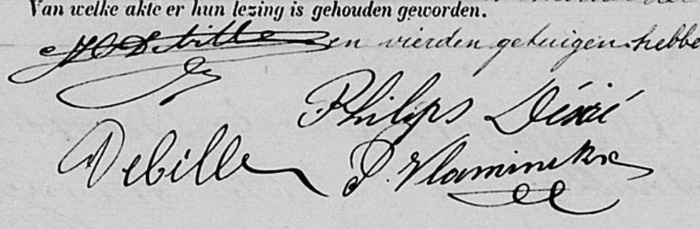 Van welke akte er hun lezing is gehouden geworden.
Debille en vierden getuigen hebbe
Philips Désiré
Debille P. Vlaminckx